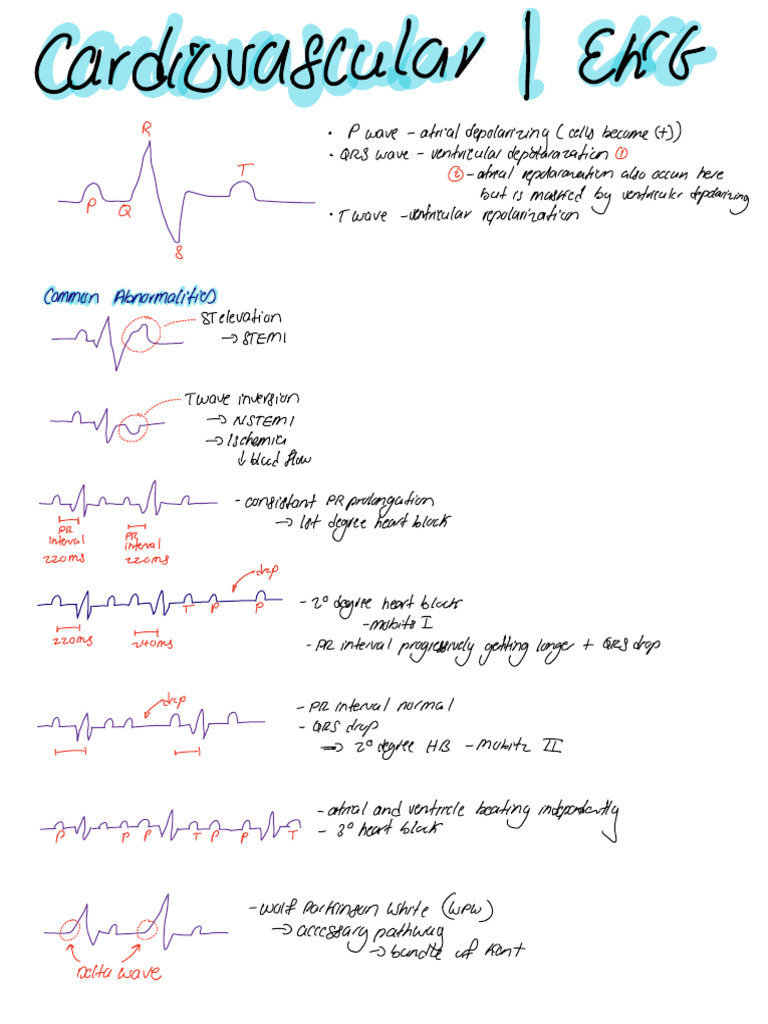 Cardiovascular | EKG
R
P
Q
S
T
• P wave - atrial depolarizing (cells become (+))
• QRS wave - ventricular depolarazation ①
② - atrial repolarization also occurs here
but is masked by ventricular depolarizing
• T wave - ventricular repolarization
Common Abnormalities
ST elevation
→ STEMI
T wave inversion
→ NSTEMI
→ Ischemia
↓ blood flow
- consistant PR prolongation
→ 1st degree heart block
PR interval 220ms
PR interval 220ms
drop
T P P
220ms 240ms
- 2° degree heart block
- mobits I
- PR interval progressively getting longer + QRS drop
drop
- PR interval normal
- QRS drop
→ 2° degree HB - Mobitz II
P P P T P P T
- atrial and ventricle beating independently
- 3° heart block
- Wolf Parkinson White (WPW)
→ accessary pathway
→ bundle of Kent
Delta wave